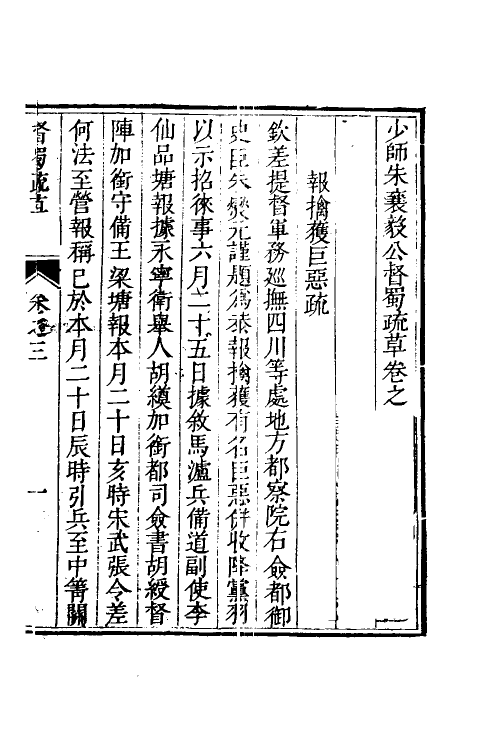 少師朱襄毅公督蜀疏草卷之
報擒獲巨惡疏
欽差提督軍務巡撫四川等處地方都察院右僉都御
史臣朱燮元謹題為恭報擒獲有名巨惡併收降黨羽
以示招徠事六月二十五日據敘馬瀘兵備道副使李
仙品塘報據永寧衛舉人胡縝加銜都司僉書胡綬督
陣加銜守備王梁塘報本月二十日亥時宋武張令差
何法至營報稱已於本月二十日辰時引兵至中箐關
督蜀疏草 卷之三 一